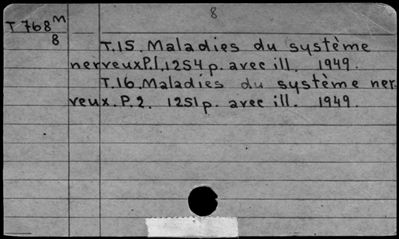 8
T 768 M
8
T.15. Maladies du système
nerveux P.1, 1254 p. avec ill. 1949.
T.16. Maladies du système ner-
veux. P. 2. 1251 p. avec ill. 1949.